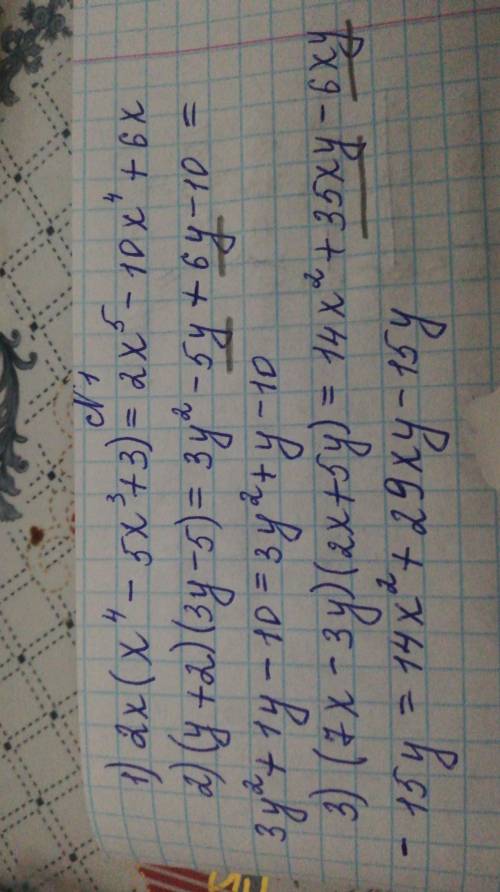 N1
1) 2x(x⁴ - 5x³ + 3) = 2x⁵ - 10x⁴ + 6x
2) (y + 2)(3y - 5) = 3y² - 5y + 6y - 10 =
3y² + 1y - 10 = 3y² + y - 10
3) (7x - 3y)(2x + 5y) = 14x² + 35xy - 6xy
- 15y = 14x² + 29xy - 15y